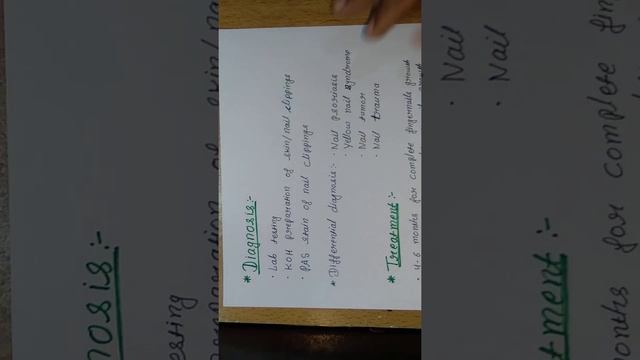 * Diagnosis:-
• Lab testing
• KOH preparation of skin/nail clippings
• PAS stain of nail clippings
* Differential diagnosis:- • Nail psoriasis
• Yellow nail syndrome
• Nail tumor
• Nail trauma
* Treatment:-
• 4-6 months for complete fingernails growth